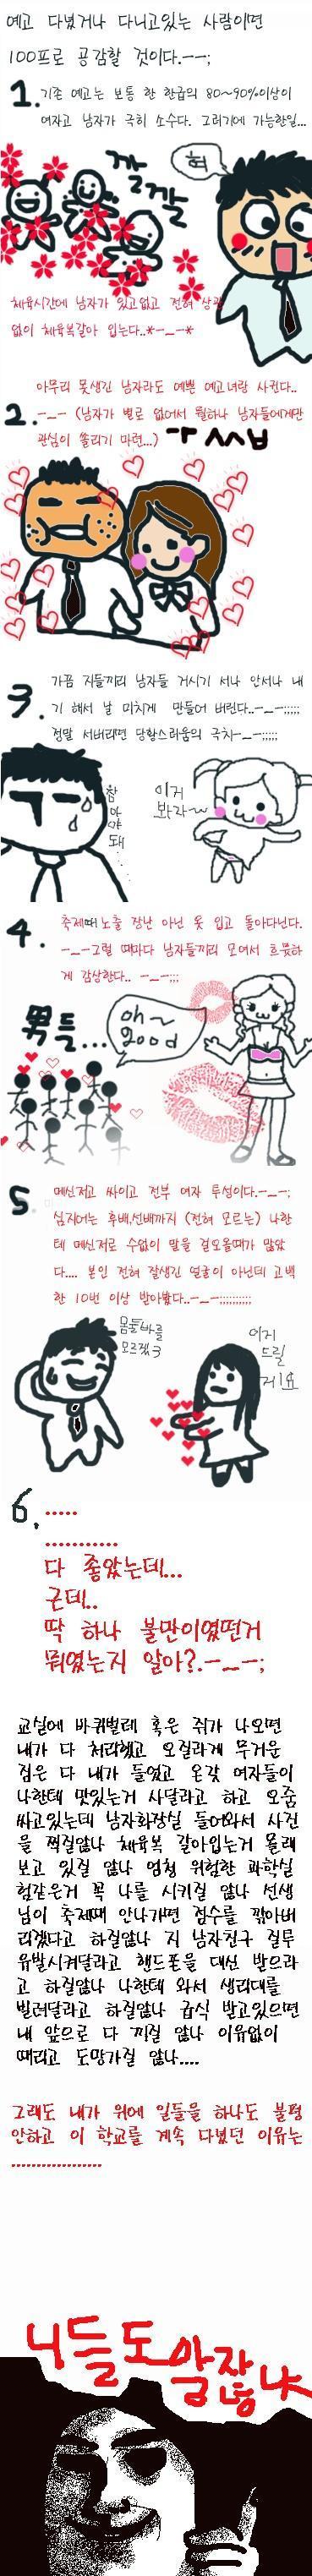 예고 다녔거나 다니고있는 사람이면
100프로 공감할 것이다.--;
1. 기존 예고는 보통 한 한급의 80~90%이상이
여자고 남자가 극히 소수다. 그러기에 가능한일...
깔깔
헉
체육시간에 남자가 있고없고 전혀 상관
없이 체육복갈아 입는다..*-_-*
아무리 못생긴 남자라도 예쁜 예고녀랑 사귄다..
2. -_- (남자가 별로 없어서 뭘하나 남자들에게만
관심이 쏠리기 마련...)
3. 가끔 지들끼리 남자들 거시기 서나 안서나 내
기 해서 날 미치게 만들어 버린다..-_-;;;;;
정말 서버리면 당황스러움의 극치-_-;;;;;
참아야돼....
이거
봐라~
4. 축제때 노출 장난 아닌 옷 입고 돌아다닌다.
-_-그럴 때마다 남자들끼리 모여서 흐뭇하
게 감상한다.. -_-;;;
男들...
oh~
good
5. 메신저고 싸이고 전부 여자 투성이다.-_-;
심지어는 후배,선배까지 (전혀 모르는) 나한
테 메신저로 수없이 말을 걸오올때가 많았
다.... 본인 전혀 잘생긴 얼굴이 아닌데 고백
한 10번 이상 받아봤다..-_-;;;;;;;;;;
몸둘바를
모르겠3
여기
드릴
게요
6. .....
...........
다 좋았는데...
근데..
딱 하나 불만이였던거
뭐였는지 알아?.-_-;
교실에 바퀴벌레 혹은 쥐가 나오면
내가 다 처리했고 오질라게 무거운
짐은 다 내가 들었고 온갖 여자들이
나한테 맛있는거 사달라고 하고 오줌
싸고있는데 남자화장실 들어와서 사진
을 찍질않나 체육복 갈아입는거 몰래
보고 있질 않나 엄청 위험한 과학실
험같은거 꼭 나를 시키질 않나 선생
님이 축제때 안나가면 점수를 깎아버
리겠다고 하질않나 지 남자친구 질투
유발시켜달라고 핸드폰을 대신 받으라
고 하질않나 나한테 와서 생리대를
빌려달라고 하질않나 급식 받고있으면
내 앞으로 다 끼질 않나 이유없이
때리고 도망가질 않나....
그래도 내가 위에 일들을 하나도 불평
안하고 이 학교를 계속 다녔던 이유는
..................
니들도 알잖냐